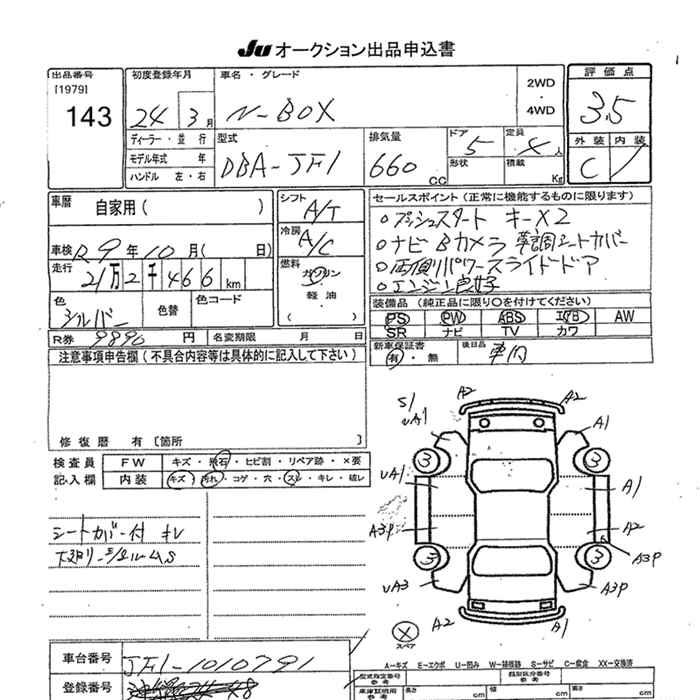 Ju オークション出品申込書
出品番号 初度登録年月 車名・グレード 2WD ・ 4WD 評価点
[1979]
143 24 3月 N-BOX 3.5
ディーラー・並行 型式 排気量 ドア 定員 外装 内装
モデル年式 年 DBA-JF1 660CC 5 4人 C
ハンドル 左・右 形状 積載 Kg
車歴 自家用( ) シフト A/T セールスポイント(正常に機能するものに限ります)
冷房 A/C ○プッシュスタート キーX2
車検 R9年10月( 日) ○ナビ Bカメラ 革調シートカバー
走行 21万2千466km 燃料 ガソリン ○両側パワースライドドア
軽油 ○エンジン良好
色 シルバー 色替 色コード ( )
装備品(純正品に限り○を付けてください)
PS PW ABS エアB AW
SR ナビ TV カワ
R券 9890円 名変期限 月 日
新車保証書 有・無 後日品 車内
注意事項申告欄(不具合内容等は具体的に記入して下さい)
修復歴 有〔箇所 〕
検査員 FW キズ・飛石・ヒビ割・リペア跡・×要
記入欄 内装 キズ・汚れ・コゲ・穴・スレ・キレ・破レ
シートカバー付 キレ
A2 A2
S1
UA1 A1
3 3
UA1 A1
A3P A2
3 3 A3P
UA3 A3P
A2 A1
スペア
車台番号 JF1-1010791
A-キズ E-エクボ U-凹み W-補修跡 S-サビ C-腐食 XX-交換済
登録番号
型式指定番号 参考 類別区分番号 参考
車庫証明用 参考 長さ cm 幅 cm 高さ cm